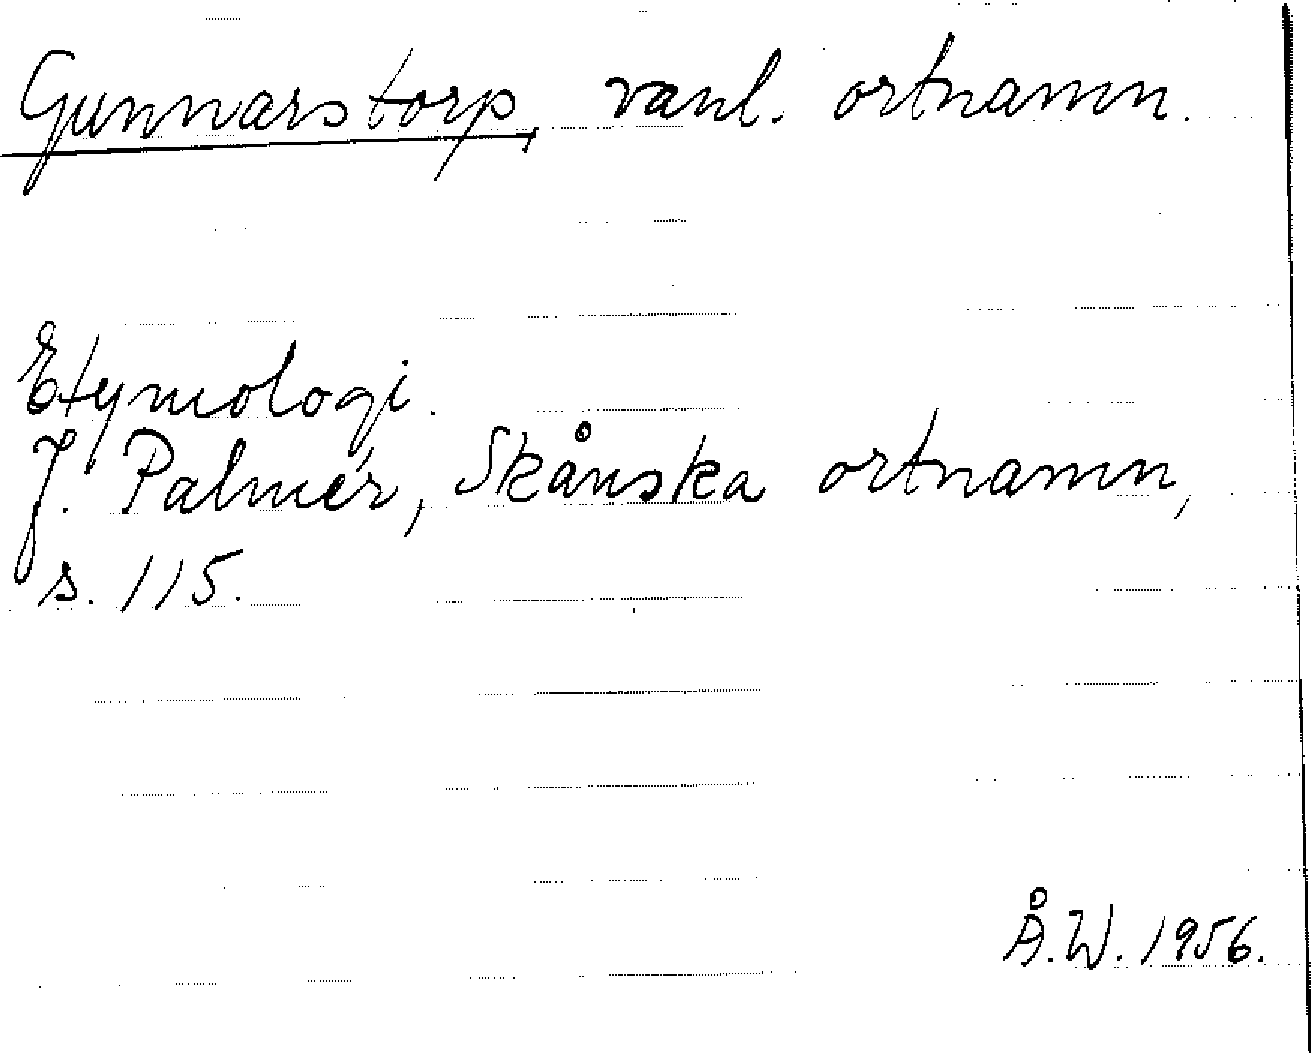 Gunnarstorp, vanl. ortnamn.
Etymologi.
J. Palmér, Skånska ortnamn,
s. 115.
Å.W. 1956.